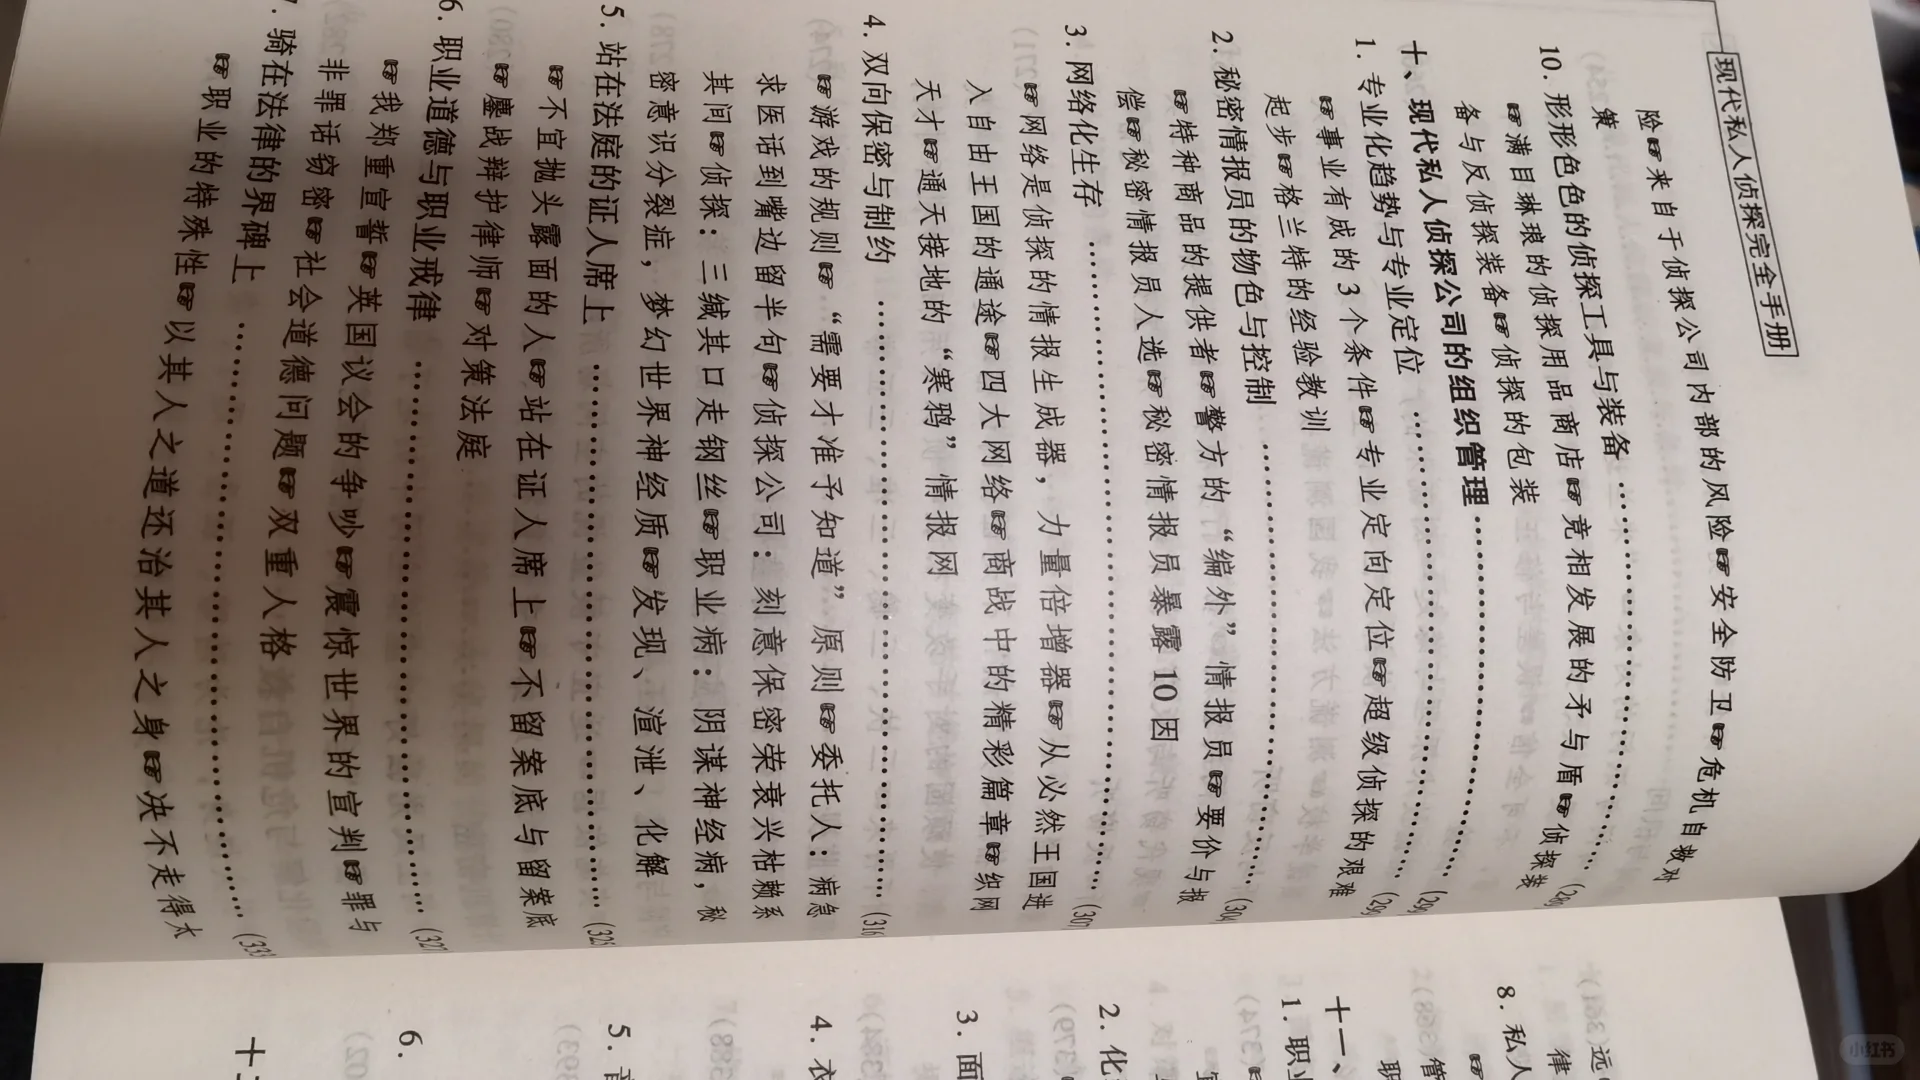 现代私人侦探完全手册
险☞来自于侦探公司内部的风险☞安全防卫☞危机自救对
策
10. 形形色色的侦探工具与装备……………………
☞满目琳琅的侦探用品商店☞竞相发展的矛与盾☞侦探装
备与反侦探装备☞侦探的包装
十、现代私人侦探公司的组织管理……………………
1. 专业化趋势与专业定位……………………
☞事业有成的3个条件☞专业定向定位☞超级侦探的艰难
起步☞格兰特的经验教训
2. 秘密情报员的物色与控制……………………(304
☞特种商品的提供者☞警方的“编外”情报员☞要价与报
偿☞秘密情报员人选☞秘密情报员暴露10因
3. 网络化生存……………………(307
☞网络是侦探的情报生成器，力量倍增器☞从必然王国进
入自由王国的通途☞四大网络☞商战中的精彩篇章☞织网
天才☞通天接地的“寒鸦”情报网
4. 双向保密与制约……………………(316)
☞游戏的规则☞“需要才准予知道”原则☞委托人：病急
求医话到嘴边留半句☞侦探公司：刻意保密荣衰兴枯赖系
其间☞侦探：三缄其口走钢丝☞职业病：阴谋神经病，秘
密意识分裂症，梦幻世界神经质☞发现、渲泄、化解
5. 站在法庭的证人席上……………………(325
☞不宜抛头露面的人☞站在证人席上☞不留案底与留案底
☞鏖战辩护律师☞对策法庭
6. 职业道德与职业戒律……………………(327
☞我郑重宣誓☞英国议会的争吵☞震惊世界的宣判☞罪与
非罪话窃密☞社会道德问题☞双重人格
7. 骑在法律的界碑上……………………(333
☞职业的特殊性☞以其人之道还治其人之身☞决不走得太
远
律
8. 私人
十一、
1. 职业
2. 化
3. 面
4. 衣
5.
6.
小红书